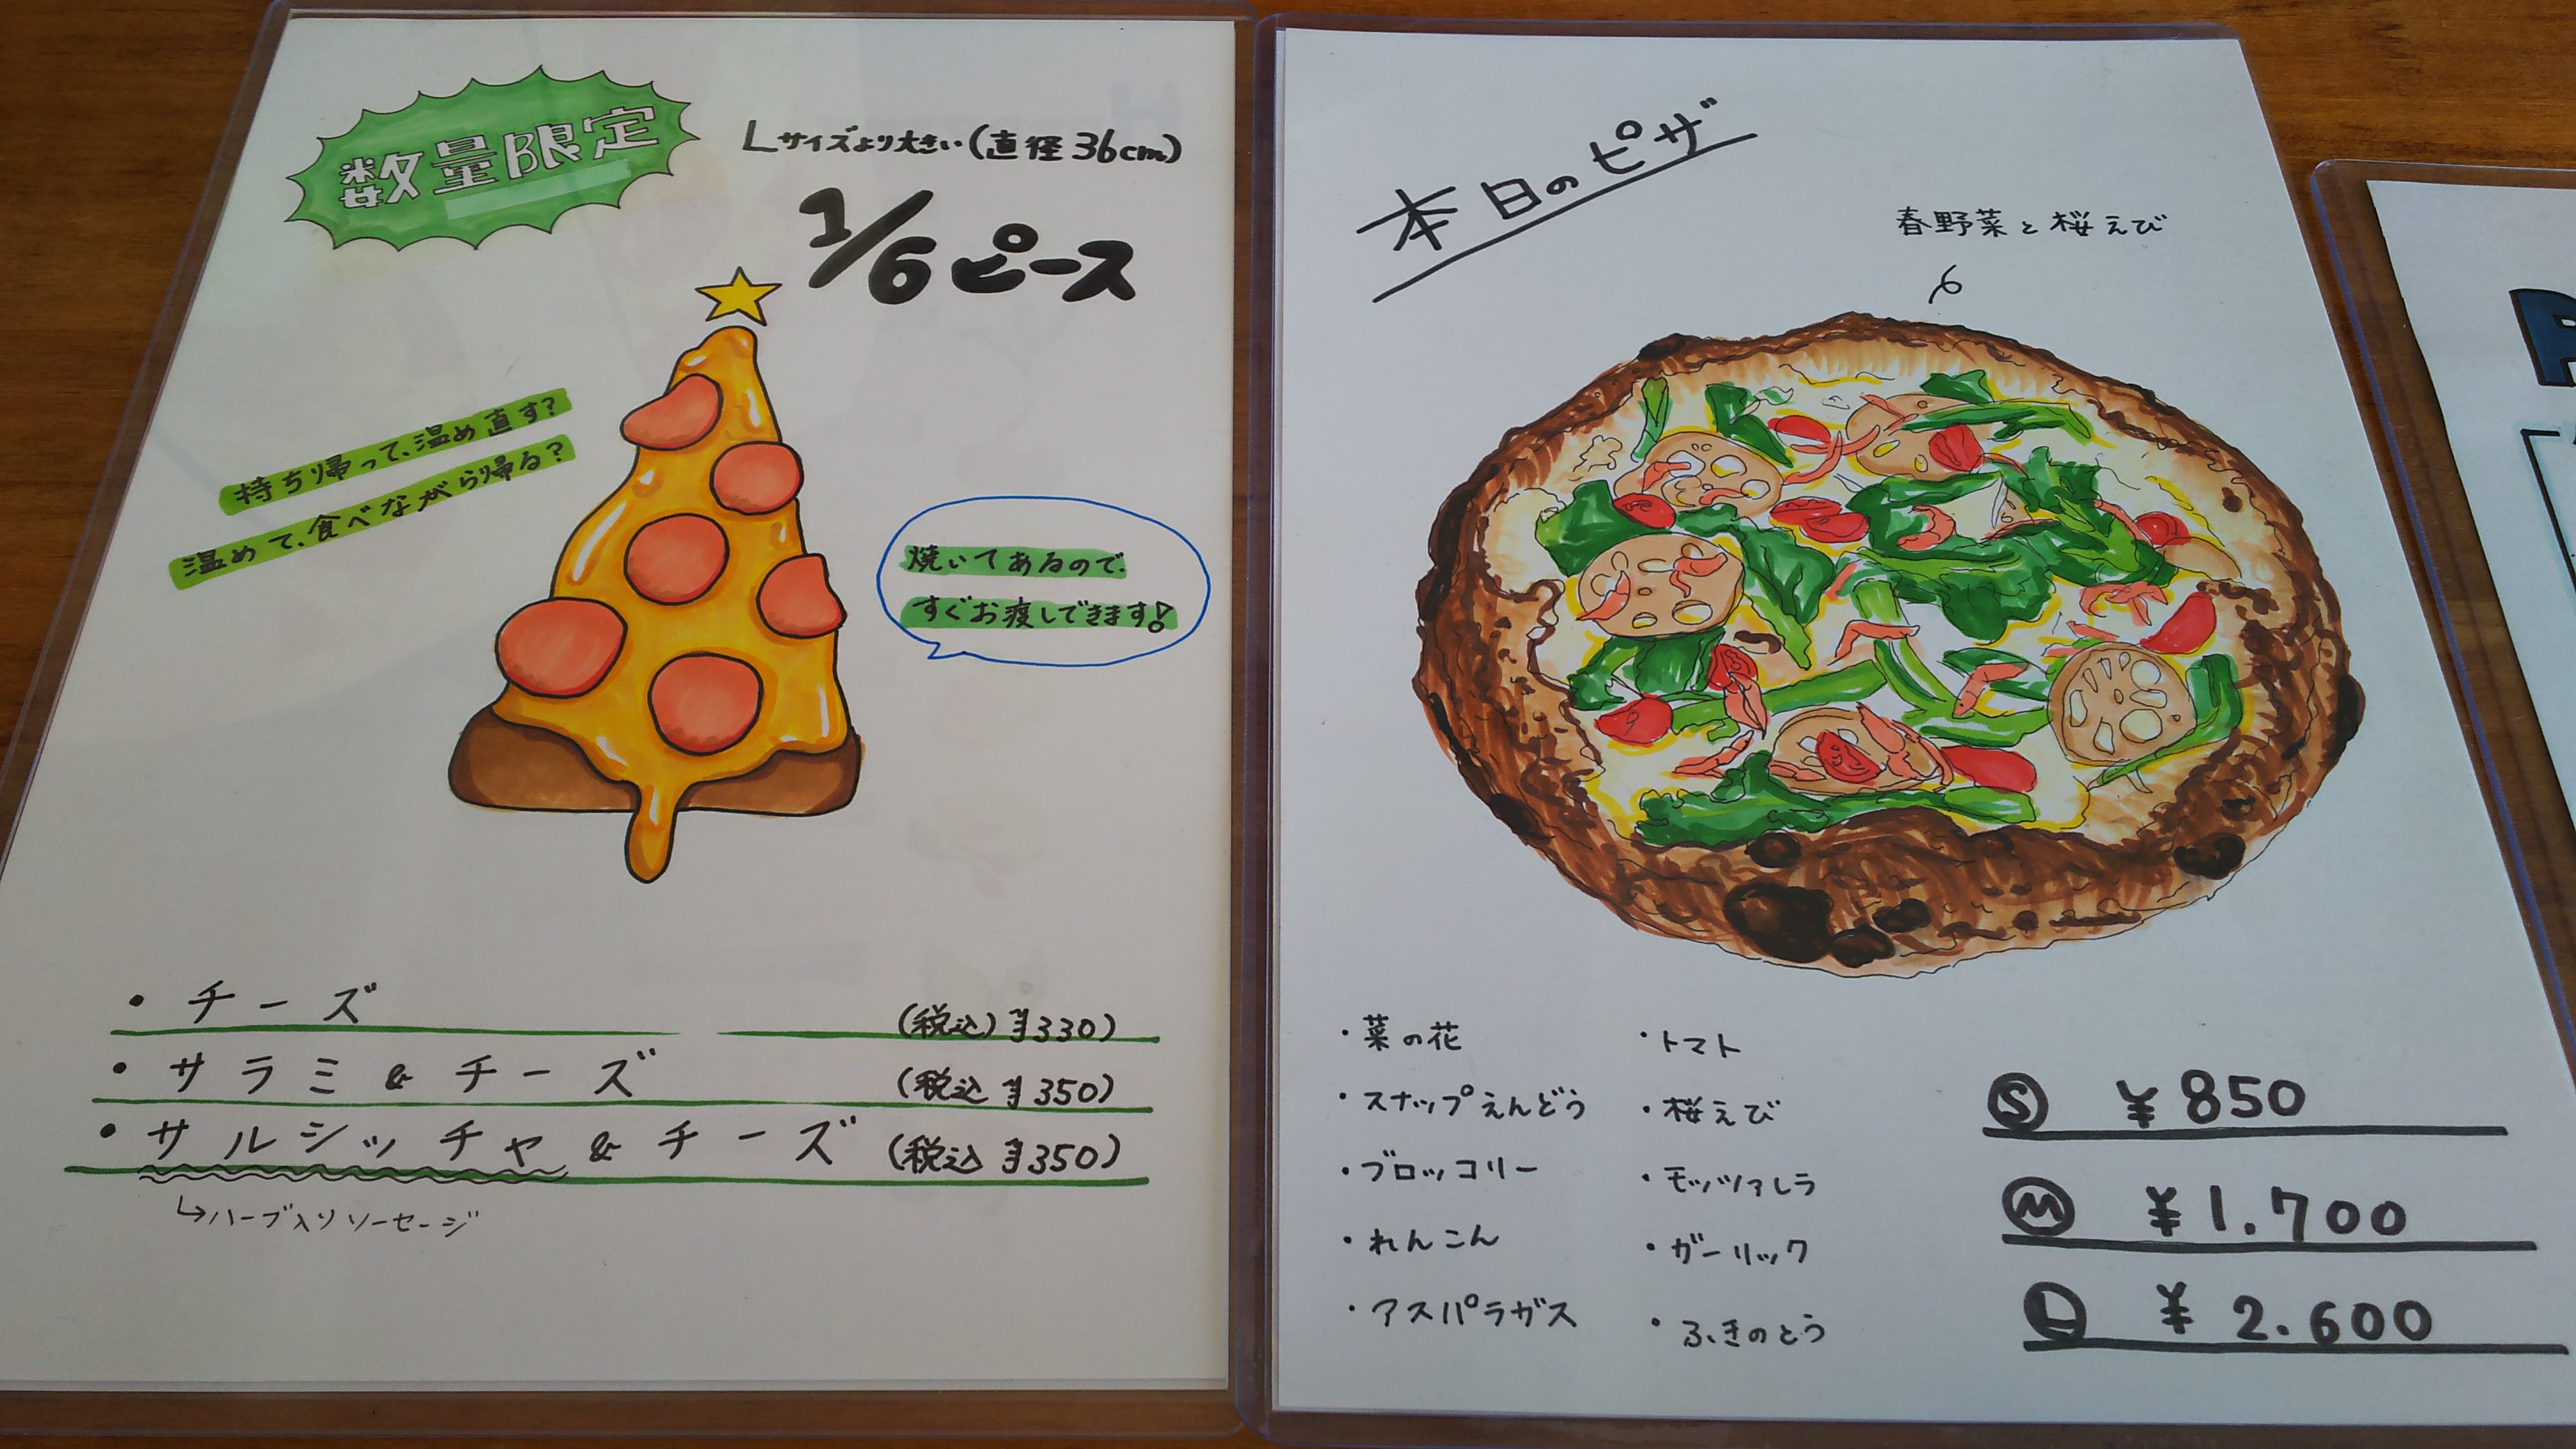 数量限定
Lサイズより大きい(直径36cm)
1/6ピース
持ち帰って、温め直す?
温めて、食べながら帰る?
焼いてあるので、
すぐお渡しできます!
・チーズ (税込)¥330)
・サラミ&チーズ (税込¥350)
・サルシッチャ&チーズ (税込¥350)
↳ハーブ入りソーセージ
本日のピザ
春野菜と桜えび
・菜の花
・スナップえんどう
・ブロッコリー
・れんこん
・アスパラガス
・トマト
・桜えび
・モッツァレラ
・ガーリック
・ふきのとう
Ⓢ ¥850
Ⓜ ¥1.700
Ⓛ ¥2.600